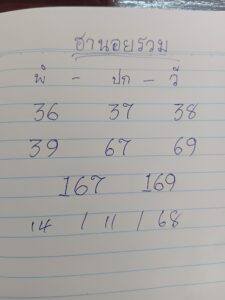 ฮานอยรวม
พิ - ปก - วี
36 37 38
39 67 69
167 169
14 / 11 / 68